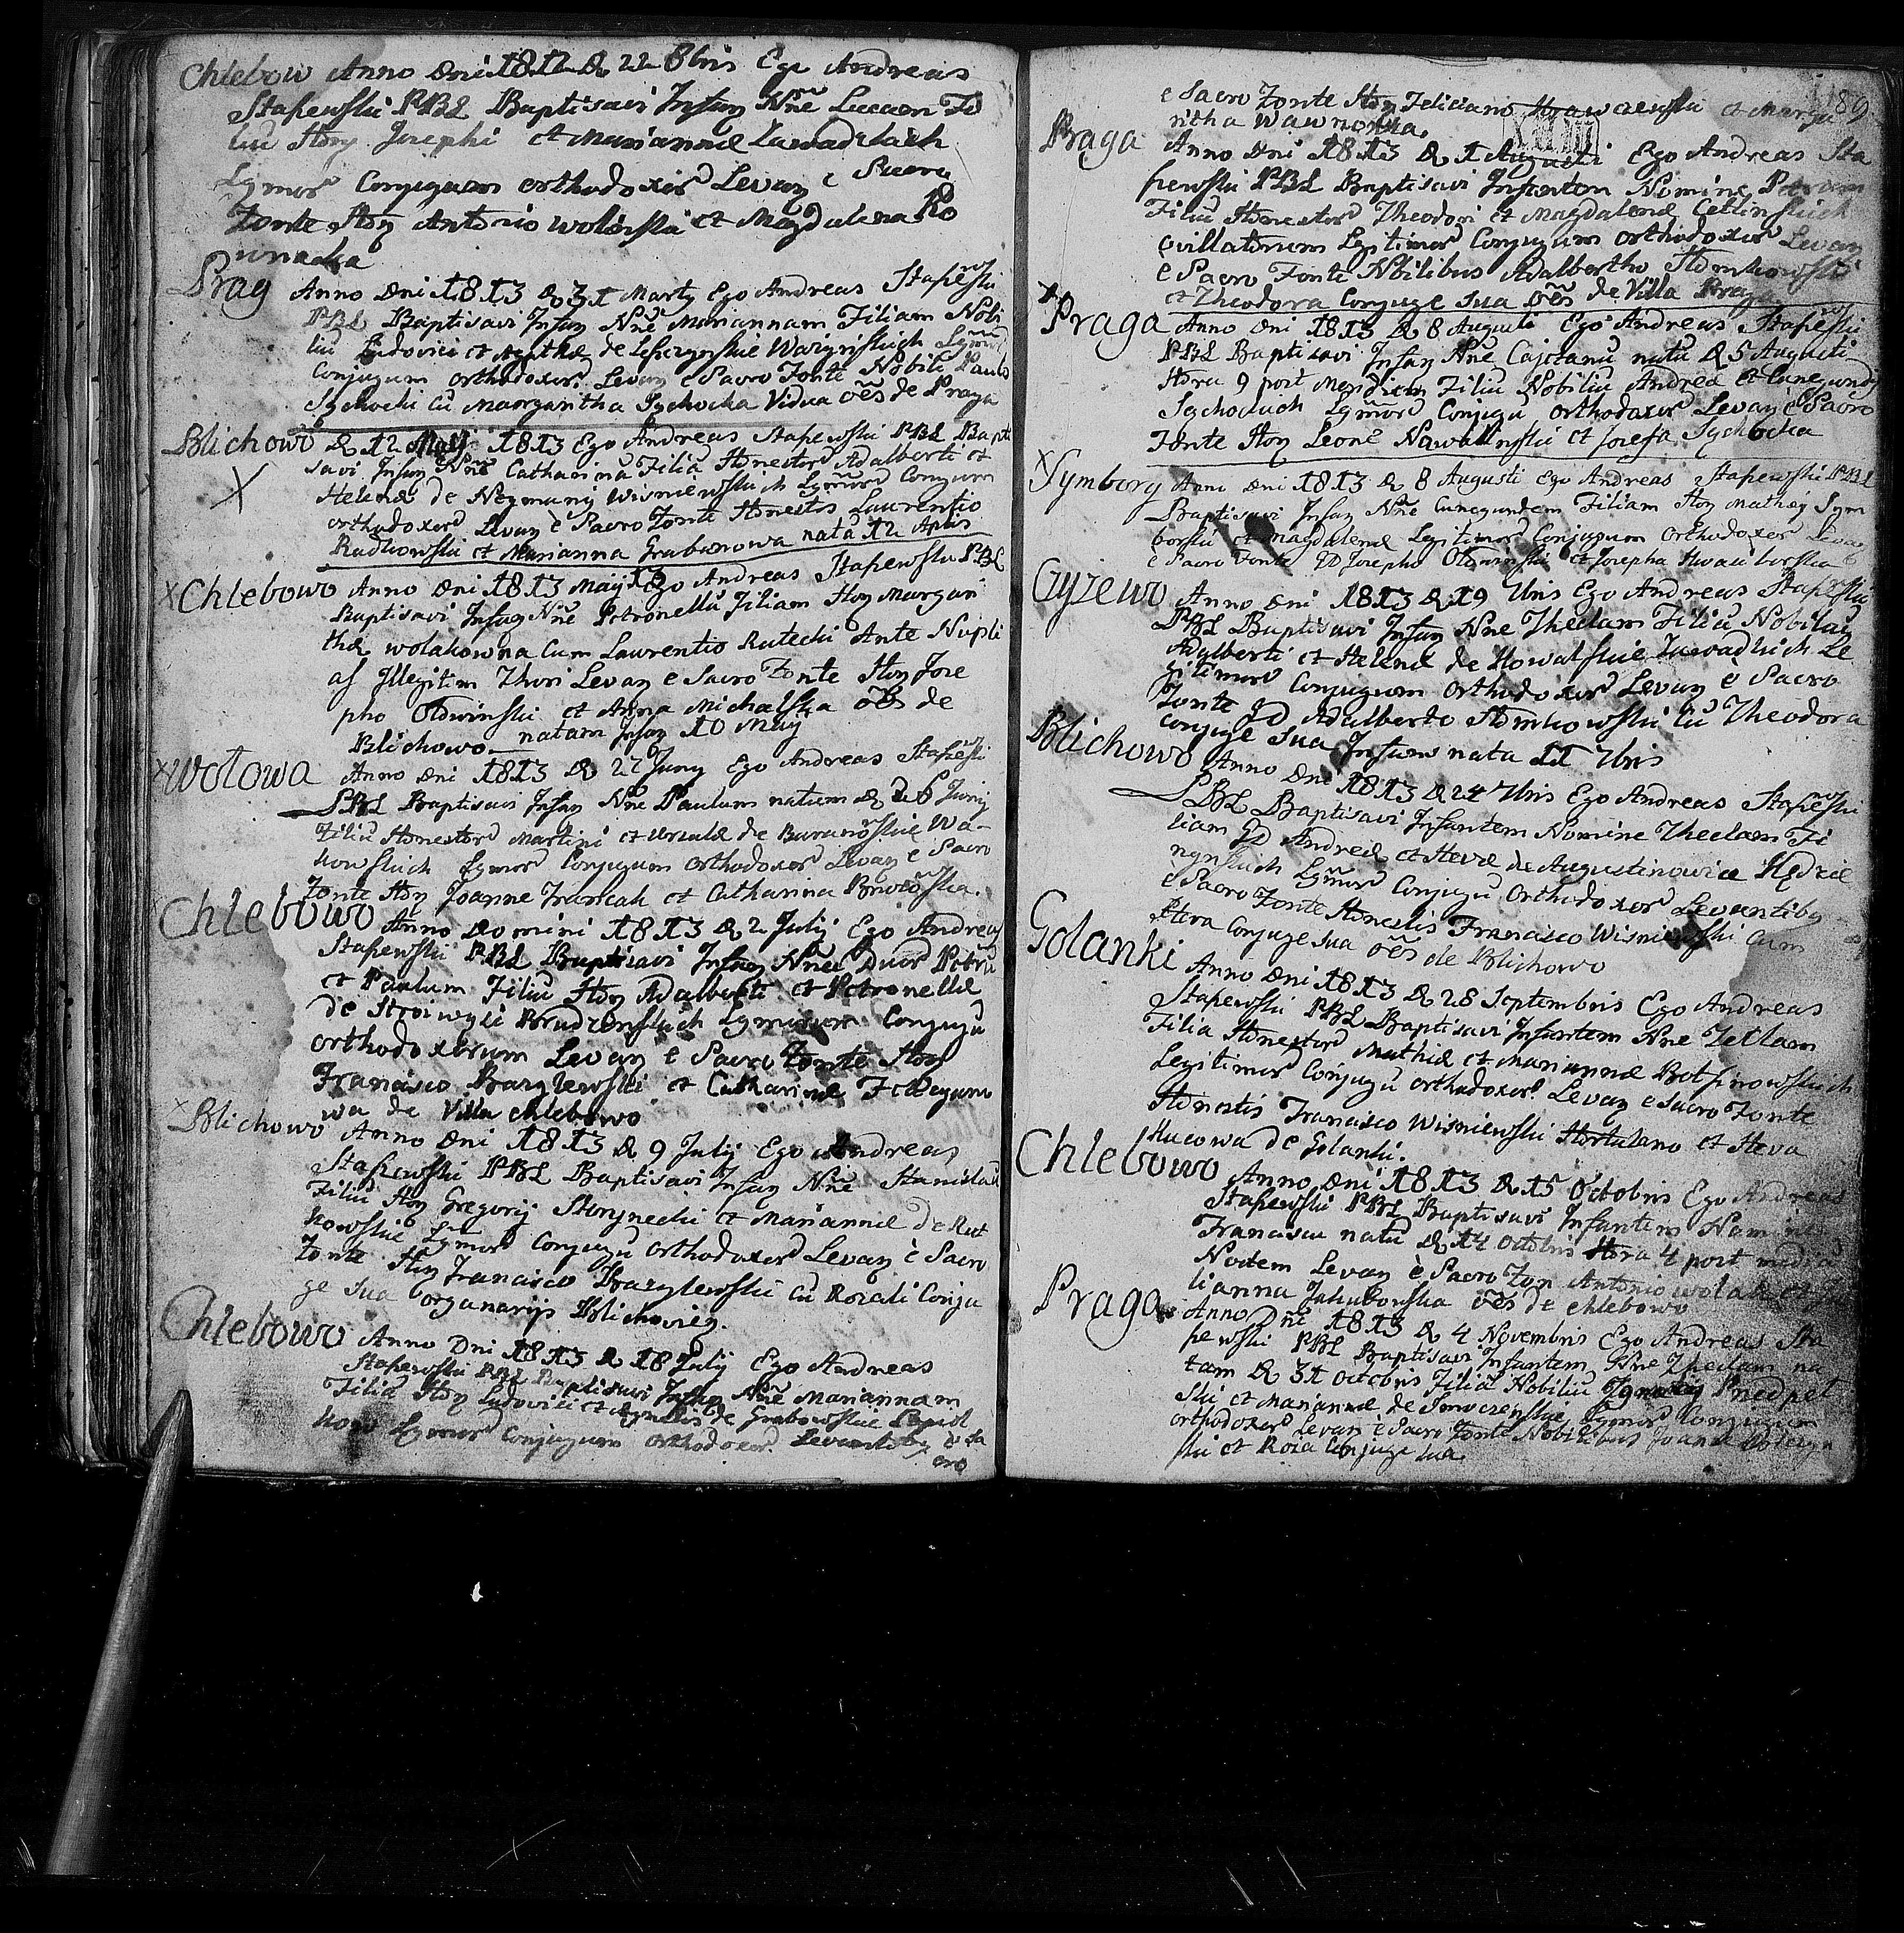 Chlebow Anno Dni 1812 D 22 8bris Ego Andreas
Stapewski PBL Baptisavi Infan Nñe Lucam Fi
liu Hon Josephi et Mariannæ Zawadzkich
Lgmor Conjugum orthodoxor Levan e Sacro
Fonte Hon Antonio Wolinski et Magdalena Ro
wnacka
Prag Anno Dni 1813 D 31 Marty Ego Andreas Stapewski
PBL Baptisavi Infan Nñe Mariannam Filiam Nobi
liu Ludovici et Agathæ de Waizynskich Lgmor
Conjugum orthodoxor Levan e Sacro Fonte Nobili Paulo
Sychocki cu Margaritha Sychocka Vidua oēs de Praga
Blichowo D 12 Maÿ 1813 Ego Andreas Stapewski PBL Bapti
savi Infan Nñe Catharina Filia Honestor Adalberti et
Helenæ de Neymany Wisniewskich Lgmor Conjgum
orthodoxor Levan e Sacro Fonte Honestis Laurentio
Radkowski et Marianna Grabowa nata 12 Aplis
Chlebowo Anno Dni 1813 May 13 Ego Andreas Stapewski PBL
Baptisavi Infan Nñe Petronellu Filiam Hon Margari
thæ Wolakowna Cum Laurentio Rutecki Ante Nupti
as Illegitim Thori Levan e Sacro Fonte Hon Jose
pho Oldwinski et Anna Michalska oēs de
Blichowo natam Infan 10 May
Wolowa Anno Dni 1813 D 27 Juny Ego Andreas Stapewski
PBL Baptisavi Infan Nñe Paulum natum D 26 Junij
Filiu Honestor Martini et Ursulæ de Wa-
kowskich Lgmor Conjugum orthodoxor Levan e Sacro
Fonte Hon Joanne et Catharina
Chlebowo Anno Domini 1813 D 2 Julij Ego Andreas
Stapewski PBL Baptisavi Infan Nñe Duos Petru
et Paulum Filiu Hon Adalberti et Petronellæ
de Lgmorum Conjugu
orthodoxorum Levan e Sacro Fonte Hon
Francisco Barzglewski et Catharinæ
wa de Villa Chlebowo
Blichowo Anno Dni 1813 D 9 Julij Ego Andreas
Stapewski PBL Baptisavi Infan Nñe Stanislau
Filiu Hon Gregorij Skrzynecki et Mariannæ de Rut
kowskie Lgmor Conjugu orthodoxor Levan e Sacro
Fonte Hon Francisco Barzglewski cu Rozali Conju
ge Sua organarijs
Chlebowo Anno Dni 1813 D 18 Julij Ego Andreas
Stapewski PBL Baptisavi Infan Nñe Mariannam
Filia Hon Ludovici et de Grabowskie
kow Lgmor Conjugum orthodoxor Levantiby e Sa
cro
89
e Sacro Fonte Hon Feliciano et Marga
ritha
Praga Anno Dni 1813 D 1 Augusti Ego Andreas Sta
pewski PBL Baptisavi Infantem Nomine Petrum
Filiu Honestor Theodori et Magdalenæ
Legitimor Conjugum orthodoxor Levan
e Sacro Fonte Nobilibus Adalbertho Homkowski
et Theodora Conjuge Sua oēs de Villa Praga
Praga Anno Dni 1813 D 8 Augusti Ego Andreas Stapewski
PBL Baptisavi Infan Nñe Cajetanu natu D 5 Augusti
Hora 9 post Meridiem Filiu Nobiliu Andreæ et Cunegundis
Sychockich Lgmor Conjugu orthodoxor Levan e Sacro
Fonte Hon Leone et Josefa Sychocka
Symbory Anno Dni 1813 D 8 Augusti Ego Andreas Stapewski PBL
Baptisavi Infan Nñe Cunegundem Filiam Hon Mathæy Sym
borski et Magdalenæ Legitimor Conjugum Orthodoxor Levan
e Sacro Fonte GD Josepho Oldwinski et Josepha
Gyzewo Anno Dni 1813 D 19 7bris Ego Andreas Stapewski
PBL Baptisavi Infan Nñe Theclam Filiu Nobiliu
Adalberti et Helenæ de Kowalskie Zawadzkich Le
gitimor Conjugum orthodoxor Levan e Sacro
Fonte GD Adalberto Homkowski cu Theodora
Conjuge Sua Infam nata 11 7bris
Blichowo Anno Dni 1813 D 24 7bris Ego Andreas Stapewski
PBL Baptisavi Infantem Nomine Theclam Fi
liam GD Andreæ et Hevæ de Augustinowicz Kędzie
Lgmor Conjugu Orthodoxor Levantiby
e Sacro Fonte Honestis Francisco Wisniewski Cum
Heva Conjuge Sua oēs de Blichowo
Golanki Anno Dni 1813 D 28 Septembris Ego Andreas
Stapewski PBL Baptisavi Infantem Nñe Teclam
Filia Honestor Mathiæ et Mariannæ
Legitimor Conjugu orthodoxor Levan e Sacro Fonte
Honestis Francisco Wisniewski Hortulano et Heva
de Golanki.
Chlebowo Anno Dni 1813 D 15 Octobris Ego Andreas
Stapewski PBL Baptisavi Infantem Nomine
Franciscu natu D 14 Octobris Hora 4 post media
Noctem Levan e Sacro Fon Antonio Wolak et Ju
lianna Jakubowska oēs de Chlebowo
Praga Anno Dni 1813 D 4 Novembris Ego Andreas Sta
pewski PBL Baptisavi Infantem Nñe Theclam na
tam D 31 Octobris Filia Nobiliu Ignatij Przedpel
ski et Mariannæ de Lgmor Conjugum
orthodoxor Levan e Sacro Fonte Nobilibus Joanne
ski et Roza Conjuge Sua